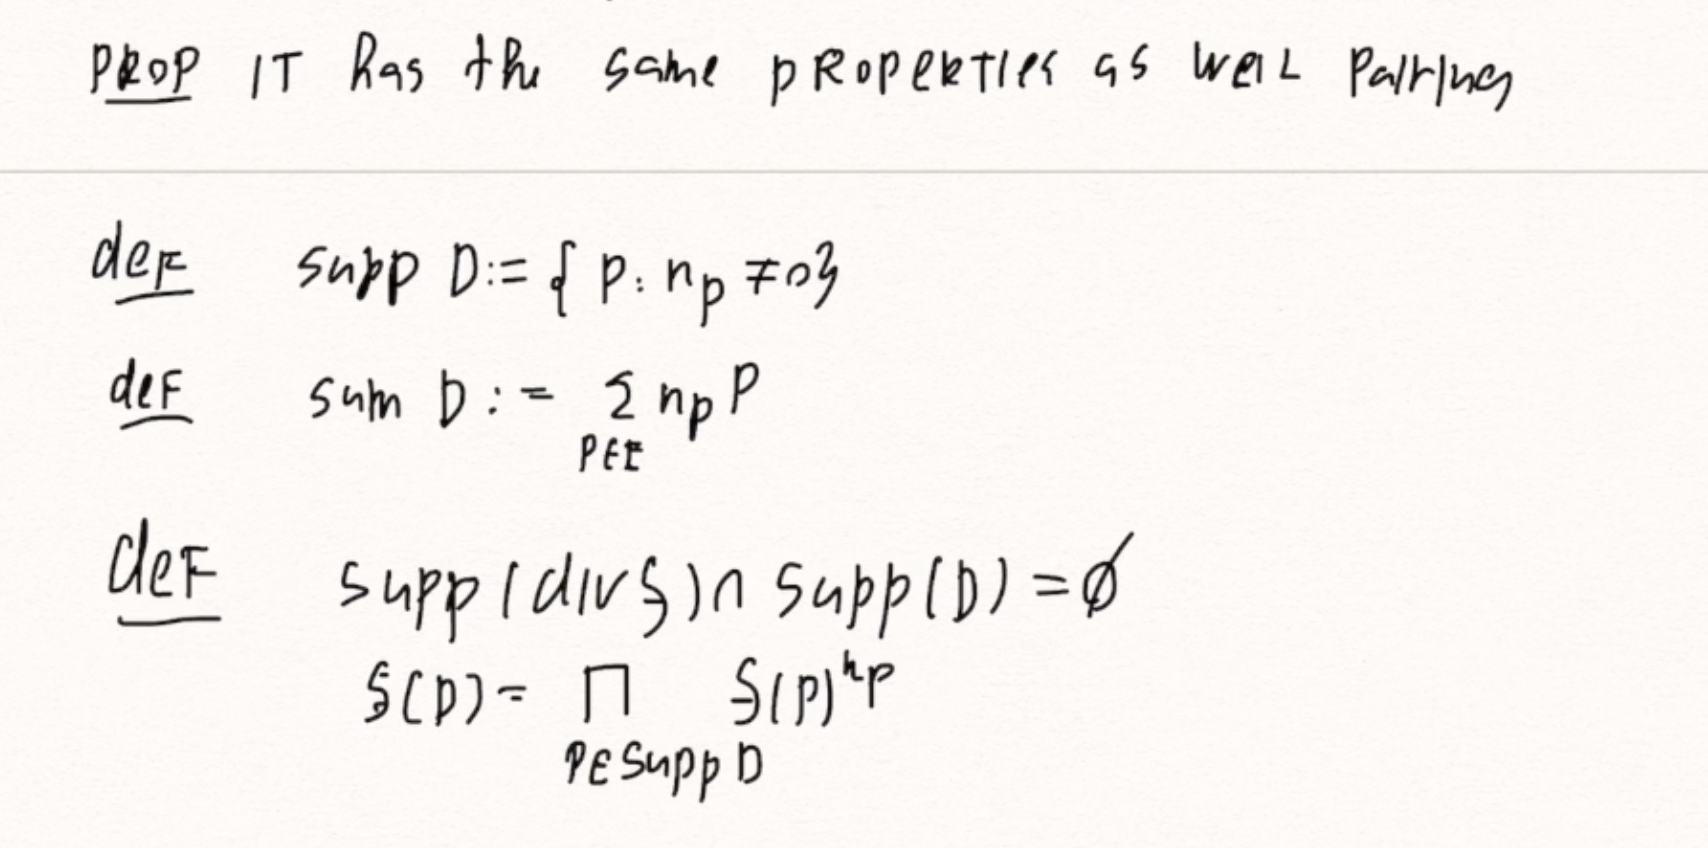 PROP IT has the same pROPERTIES as WEIL Pairing
def supp D:= { P: n_P ≠ 0}
def sum D := Σ n_P P
P∈E
def supp (div f) ∩ supp(D) = ∅
f(D) = Π f(P)^{n_P}
P∈ supp D